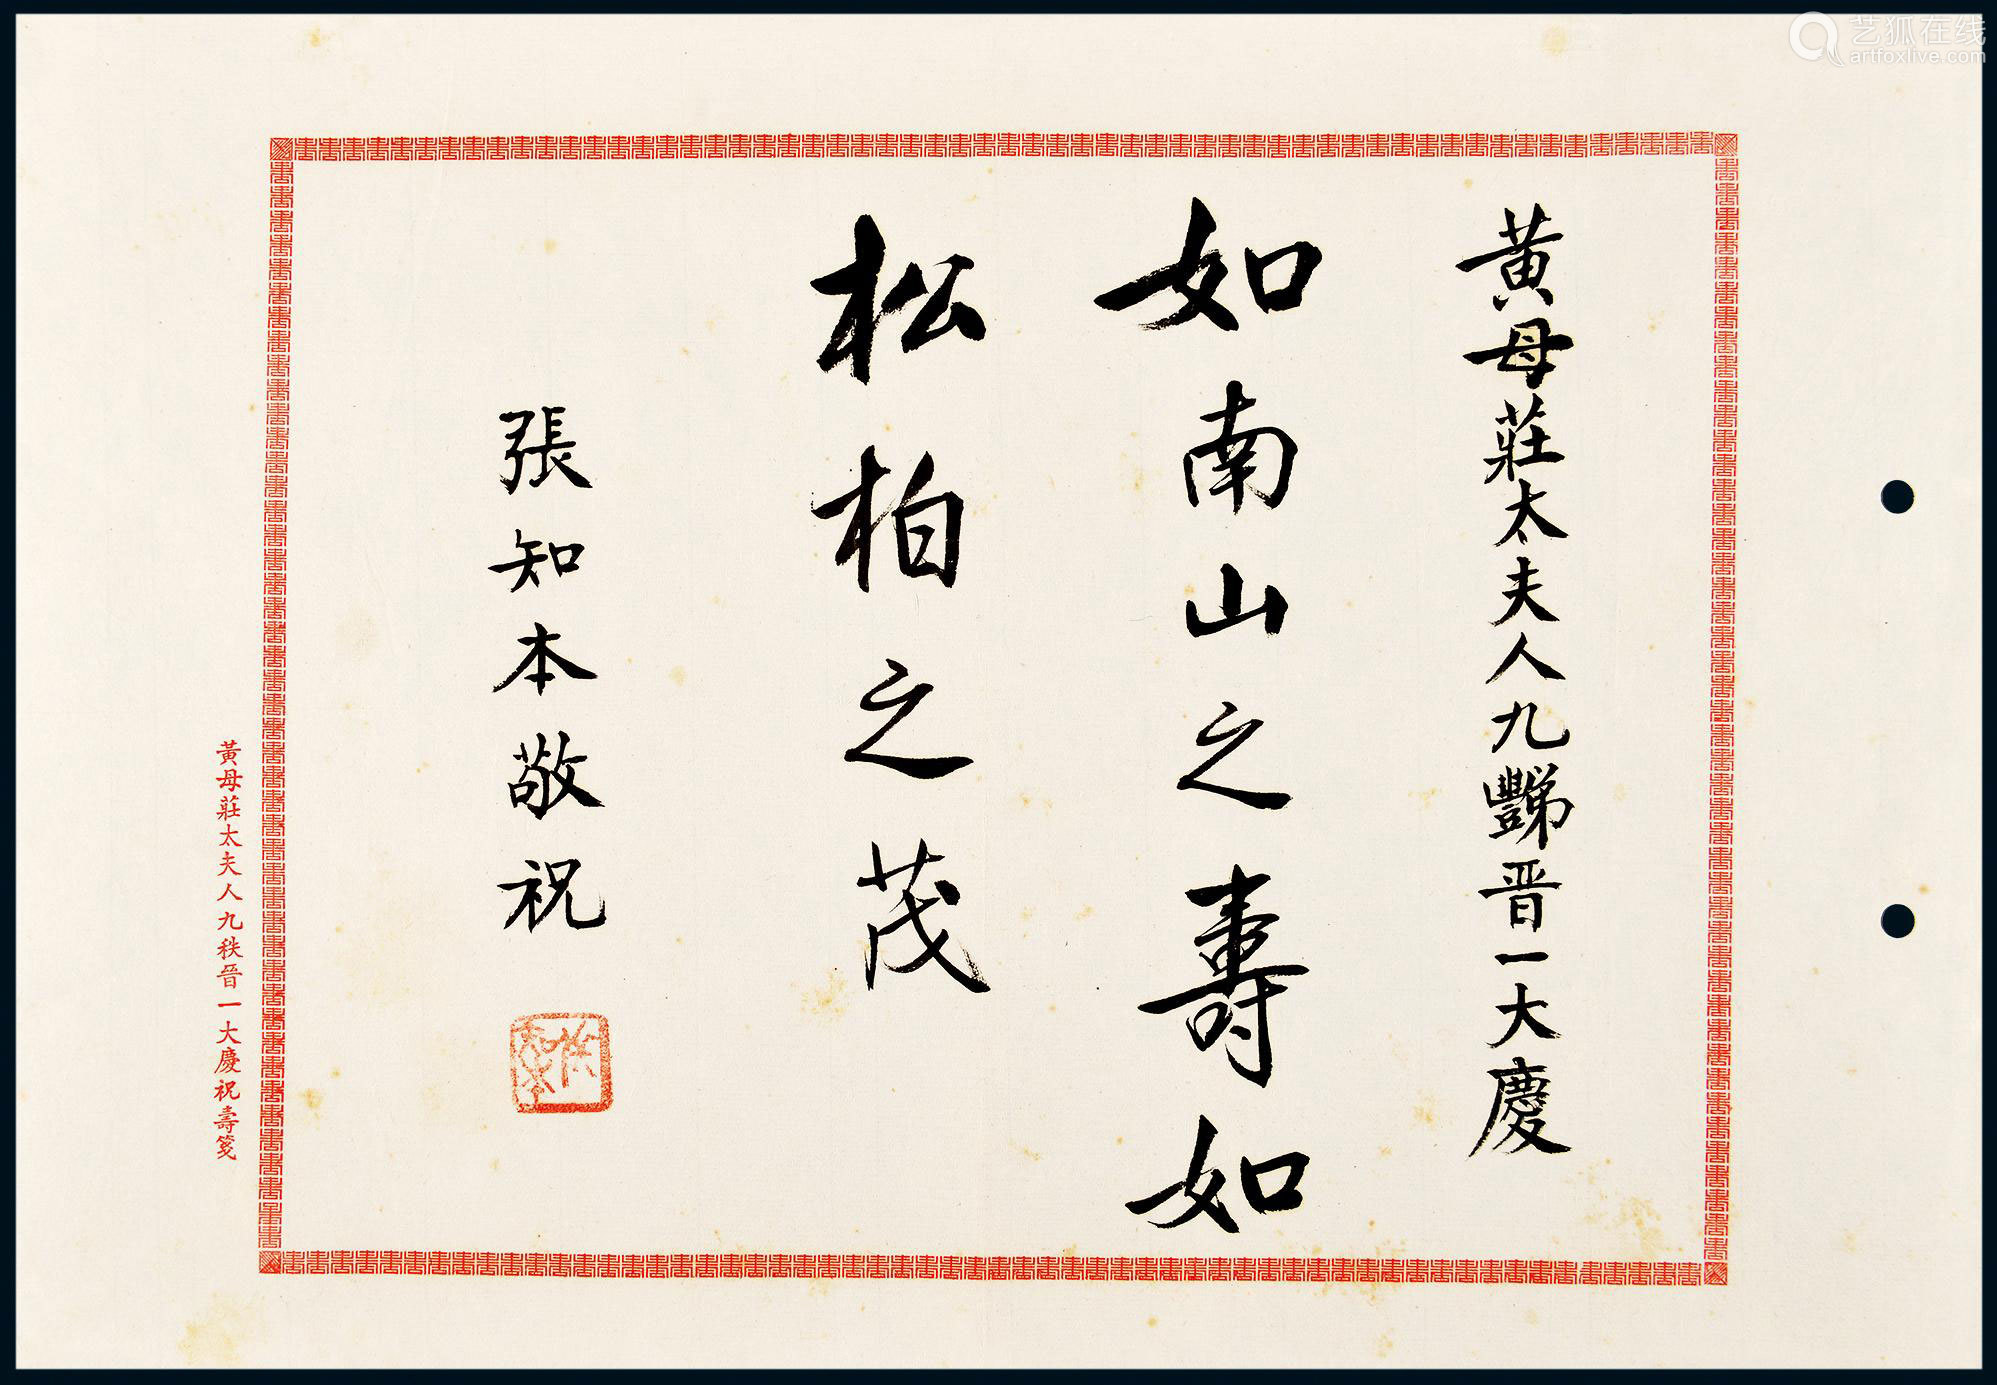 黄母莊太夫人九豑晋一大慶
如南山之壽如
松柏之茂
張知本敬祝
黃母莊太夫人九秩晉一大慶祝壽箋
艺狐在线
artfoxlive.com